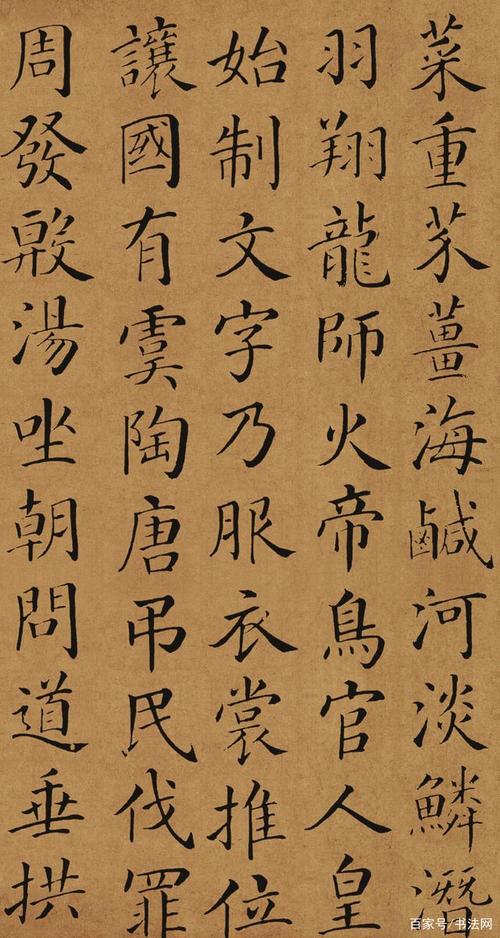 菜重芥薑海鹹河淡鱗潛
羽翔龍師火帝鳥官人皇
始制文字乃服衣裳推位
讓國有虞陶唐吊民伐罪
周發殷湯坐朝問道垂拱
百家号/书法网